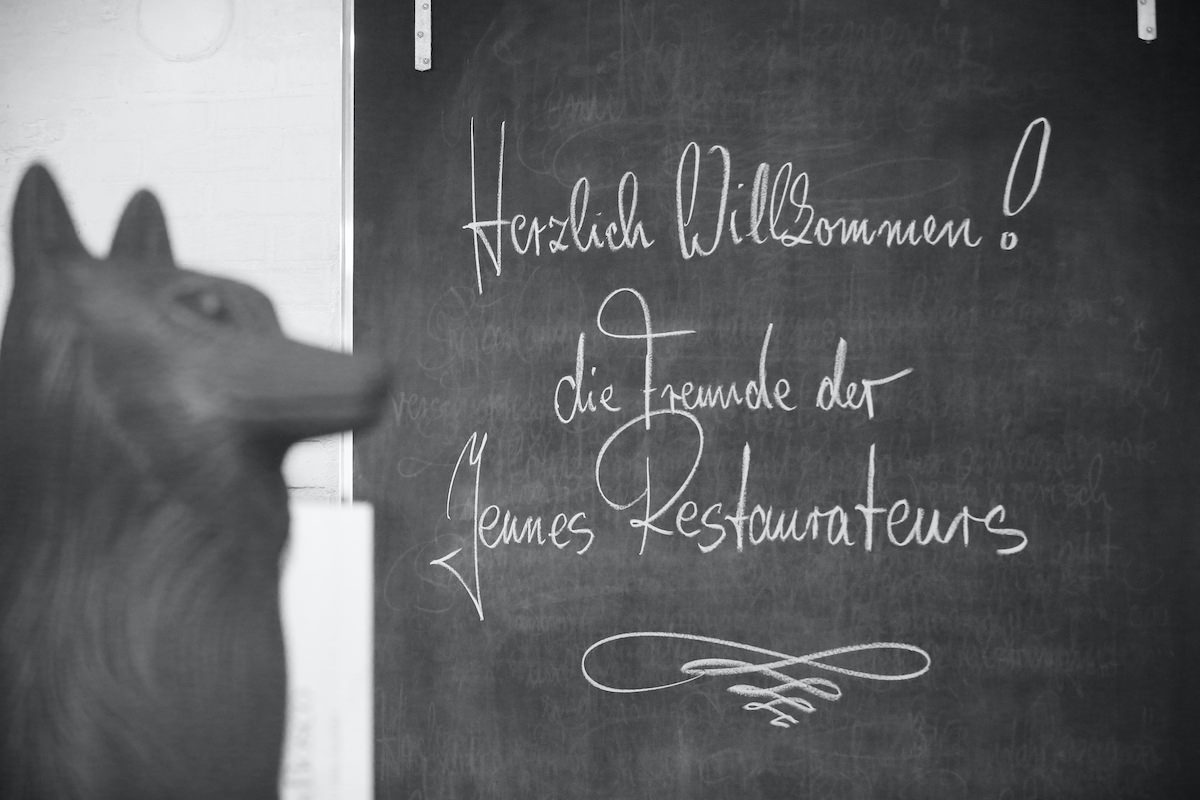 Herzlich Willkommen!
die Freunde der
Jeunes Restaurateurs